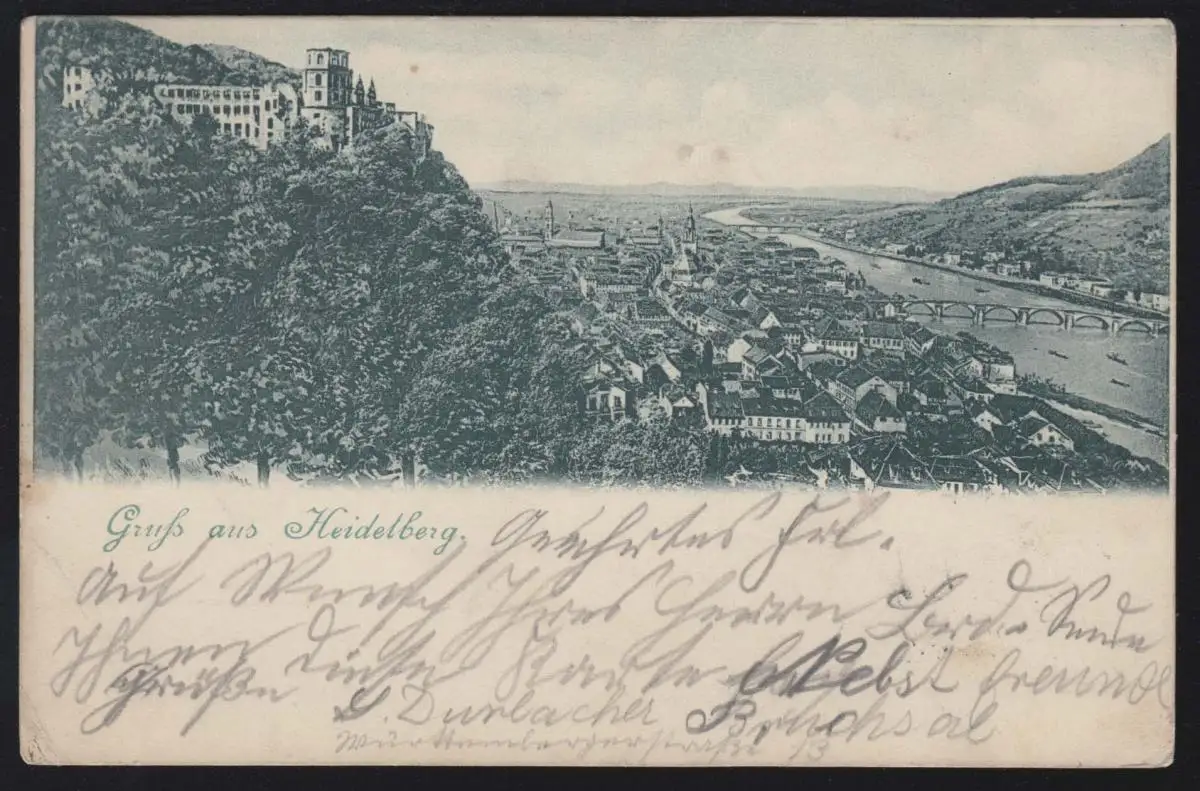 Gruß aus Heidelberg. Geehrtes Frl.
Auf Wunsch Ihres Herrn Sende
Ihnen diese Karte Nebst freundl
Grüße L. Durlacher Bruchsal
Württembergerstraße 13